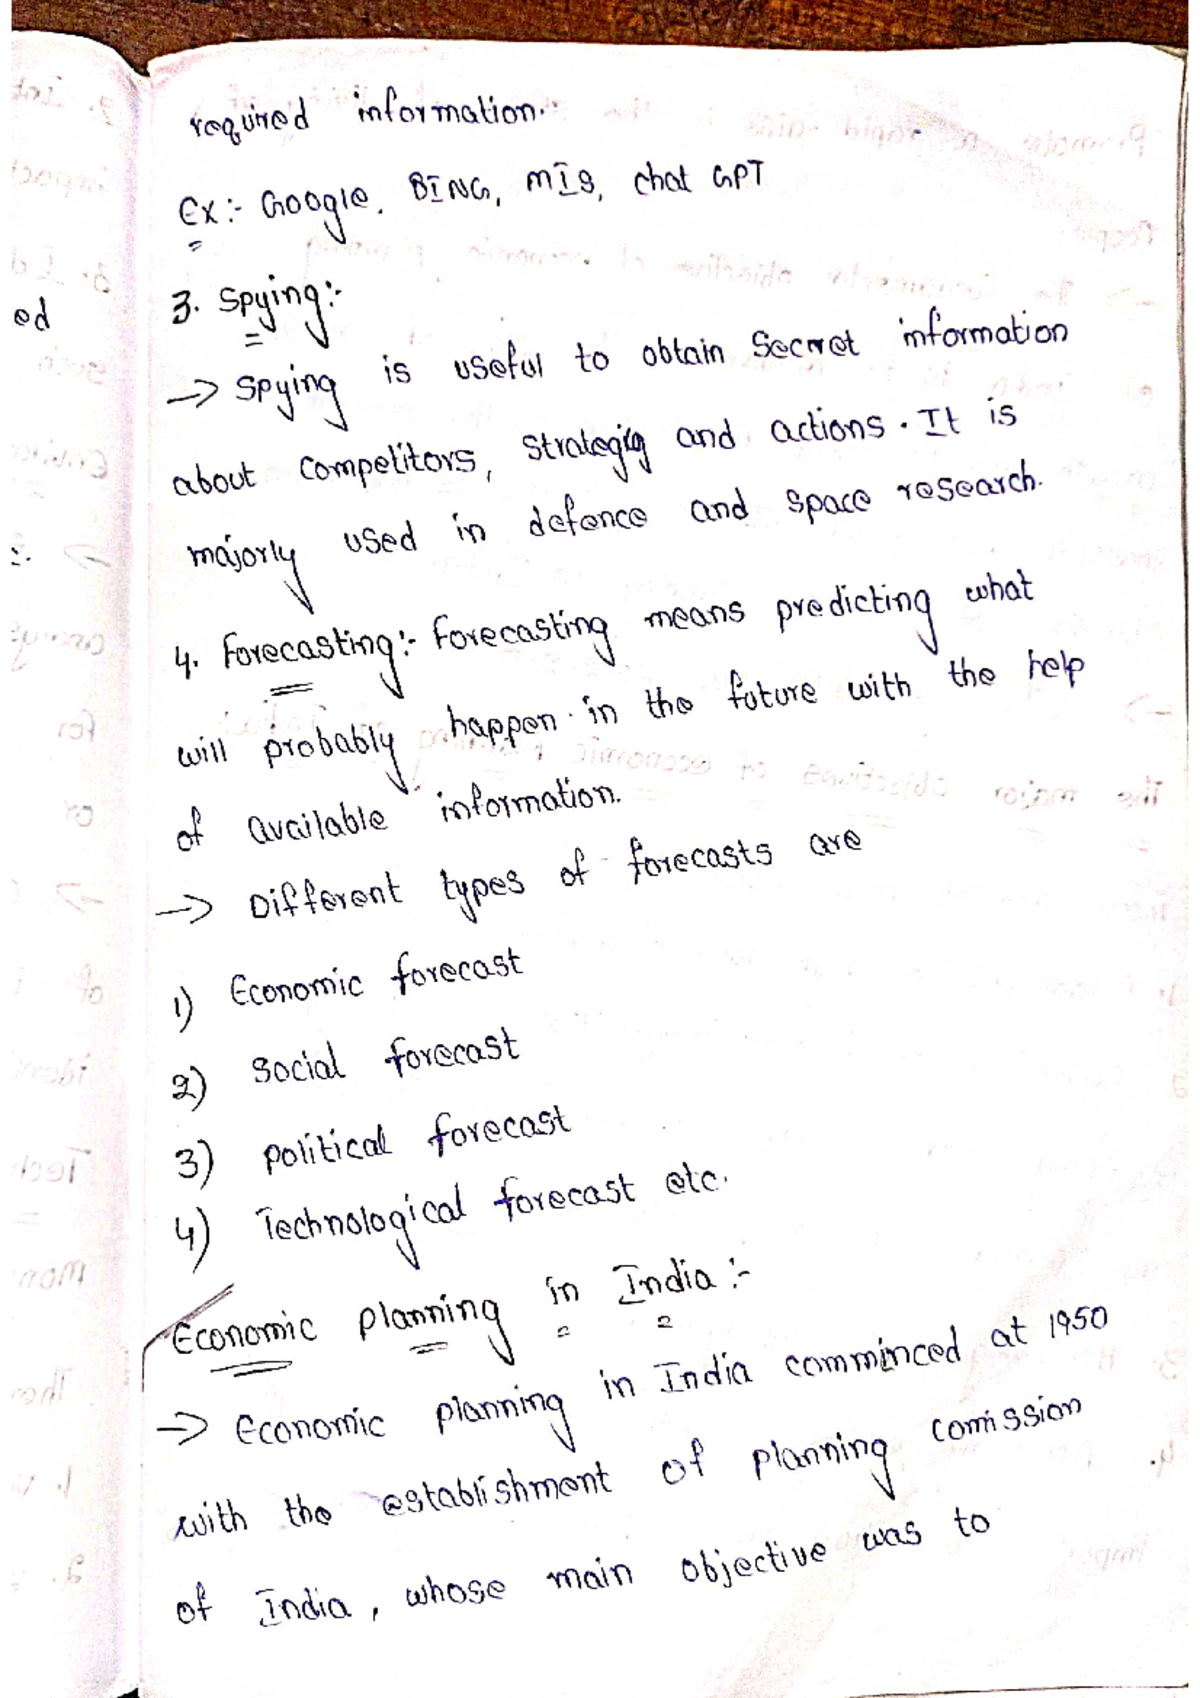 required information.
Ex:- Google, BING, MIS, chat GPT
3. Spying:-
→ Spying is useful to obtain Secret information
about competitors, strategig and actions. It is
majorly used in defence and space research.
4. Forecasting:- Forecasting means predicting what
will probably happen in the future with the help
of available information.
→ Different types of forecasts are
1) Economic forecast
2) Social forecast
3) political forecast
4) Technological forecast etc.
Economic planning in India:-
→ Economic planning in India comminced at 1950
with the establishment of planning comission
of India, whose main objective was to
ed